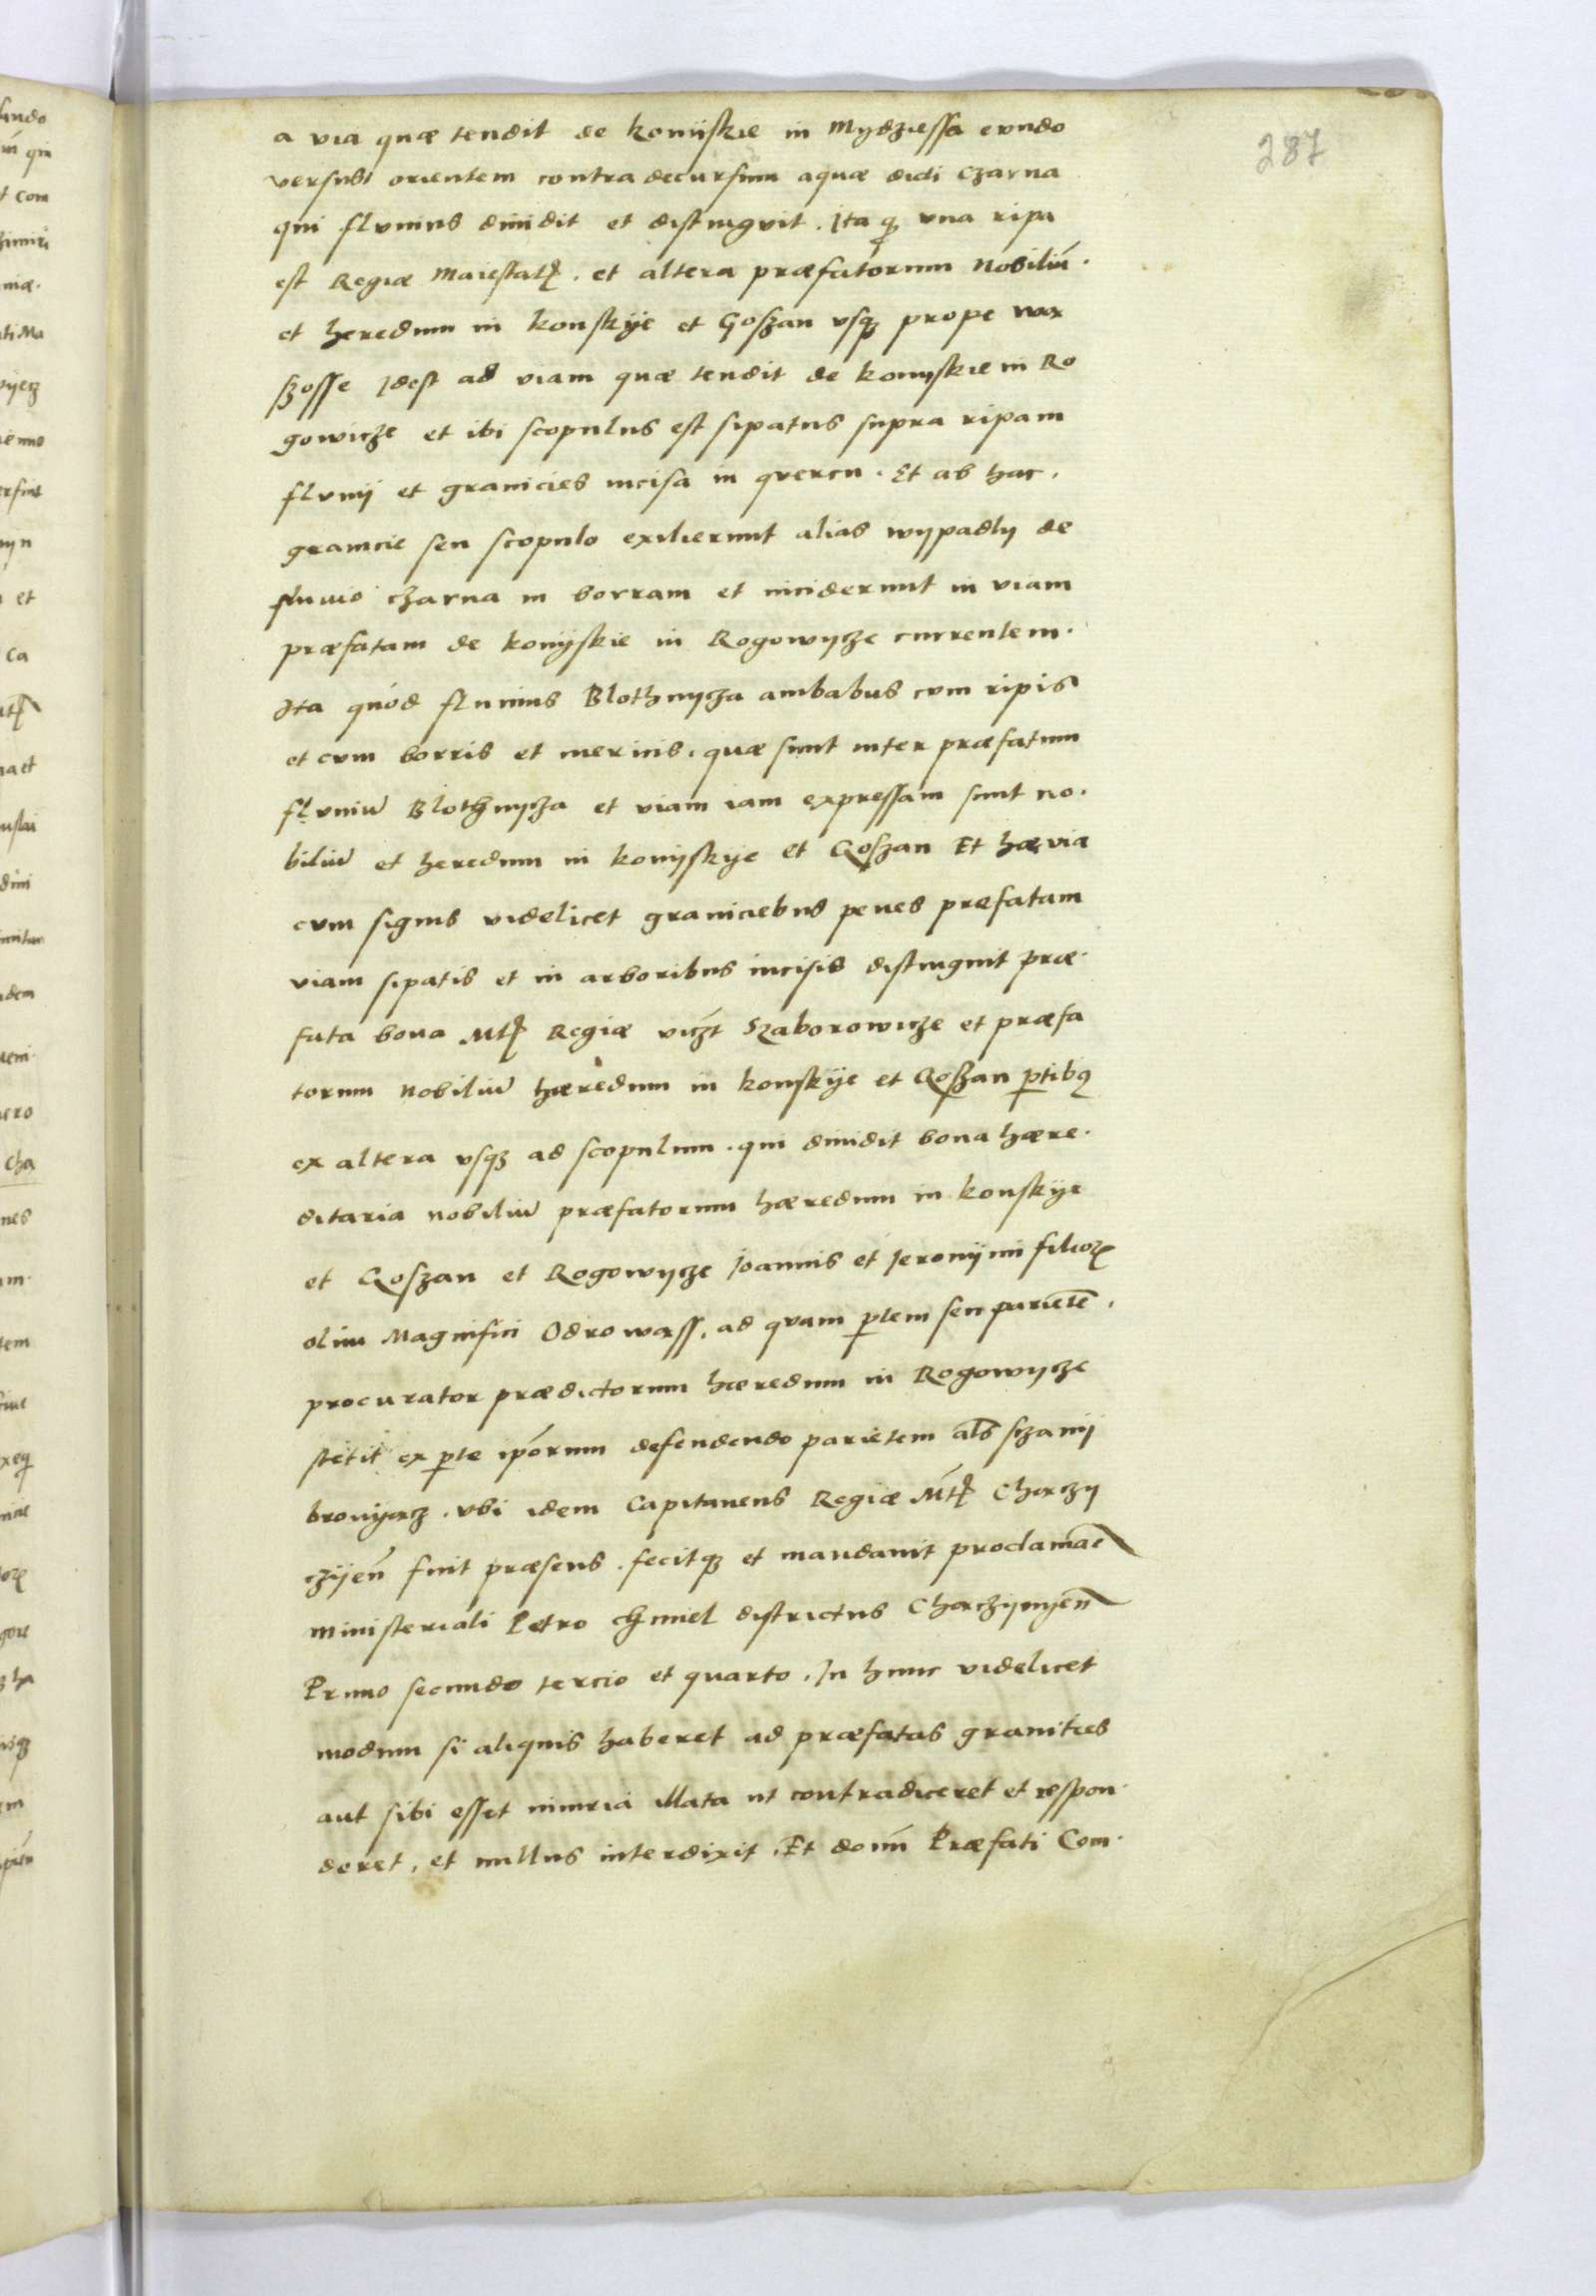 287
a via quæ tendit de konijskie in Mydziessa eundo
versus orientem contra decursum aquæ dicti Czarna
qui fluvius dividit et distinguit. Ita q̃ una ripa
est Regiæ Maiestatꝭ. et altera præfatorum Nobiliũ.
et heredum in konskÿe et Goszan usqꝫ prope wrx
szosse Idest ad viam quæ tendit de konyskie in Ro
gowicze et ibi scopulus est sipatus supra ripam
fluvij et granicies incisa in quercu. Et ab hac.
granicie seu scopulo exilierunt alias wypadly de
fluvio czarna in borram et inciderunt in viam
præfatam de konijskie in Rogowycze currentem.
Ita quòd fluvius Blothnycza ambabus cum ripis
et cum borris et mericis. quæ sunt inter præfatum
fluviũ Blothnycza et viam iam expressam sunt no.
biliũ et heredum in konijskye et Goszan Et hæc via
cum signis videlicet graniciebus penes præfatam
viam sipatis et in arboribus incisis distinguit præ.
fata bona Mtꝭ Regiæ viczt Szaborowicze et præfa
torum nobiliũ hæredum in konskije et Goszan ptibꝰ
ex altera usqꝫ ad scopulum. qui dividit bona hære.
ditaria nobiliũ præfatorum hæredum in konskije
et Goszan et Rogowycze Joannis et Jeronijmi filioꝝ
olim Magnifici Odrowass. ad quam ptem seu parietẽ.
procurator prædictorum hæredum in Rogowycze
stetit ex pte ipõrum defendendo parietem als sczanij
bronijącz. ubi idem Capitaneus Regiæ Mtꝭ Chączy
czijeñ fuit præsens. fecitqꝫ et mandavit proclamae
ministeriali Petro chmiel districtus Chączijnijeñ
Primo secundo tercio et quarto. In hunc videlicet
modum si aliquis haberet ad præfatas granities
aut sibi esset iniuria illata ut contradiceret et respon.
deret, et nullus interdixit. Et domi Præfati Com.